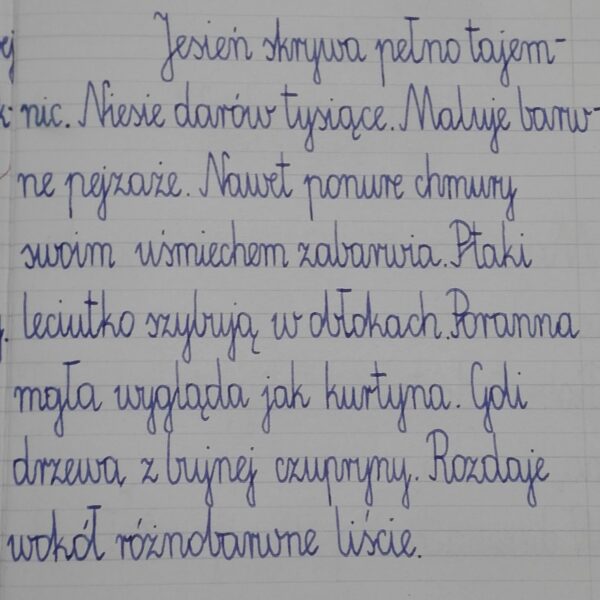 Jesień skrywa pełno tajem-
nic. Niesie darów tysiące. Maluje barw-
ne pejzaże. Nawet ponure chmury
swoim uśmiechem zabarwia. Ptaki
leciutko szybują w obłokach. Poranna
mgła wygląda jak kurtyna. Goli
drzewa z bujnej czupryny. Rozdaje
wokół różnobarwne liście.